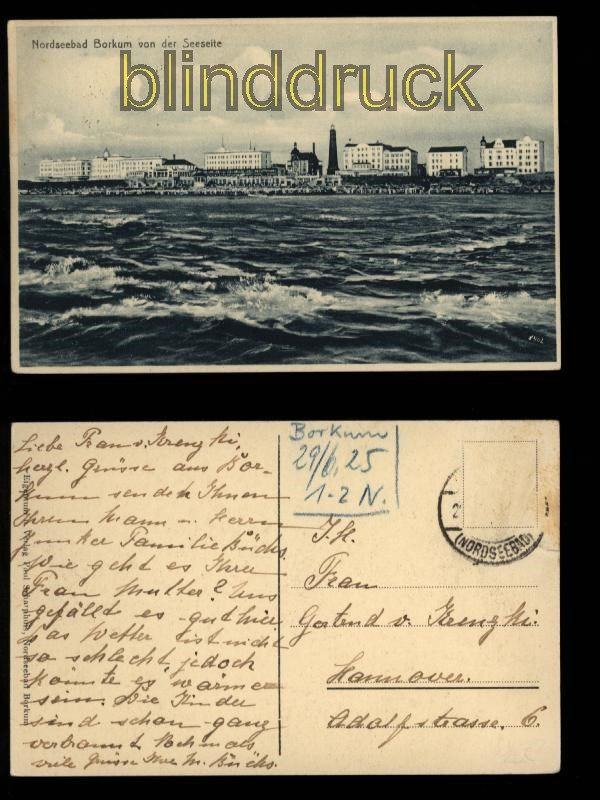 Nordseebad Borkum von der Seeseite
blinddruck
Liebe Frau v. Krenzki,
herzl. Grüsse aus Bor-
kum senden Ihnen
Ihrem Mann u. Herrn
Junker Familie Büchs.
Wie geht es Ihrer
Frau Mutter? Uns
gefällt es gut hier
das Wetter ist nicht
so schlecht, jedoch
könnte es wärmer
sein. Die Kinder
sind schon ganz
verbrannt. Nochmals
viele Grüsse Ihre M. Büchs.
Verlag Paul Nordseebad Borkum
Borkum
29/6. 25
1-2 N.
(NORDSEEBAD)
Frau
Gertrud v. Krenzki.
Hannover.
Adolfstrasse. 6.